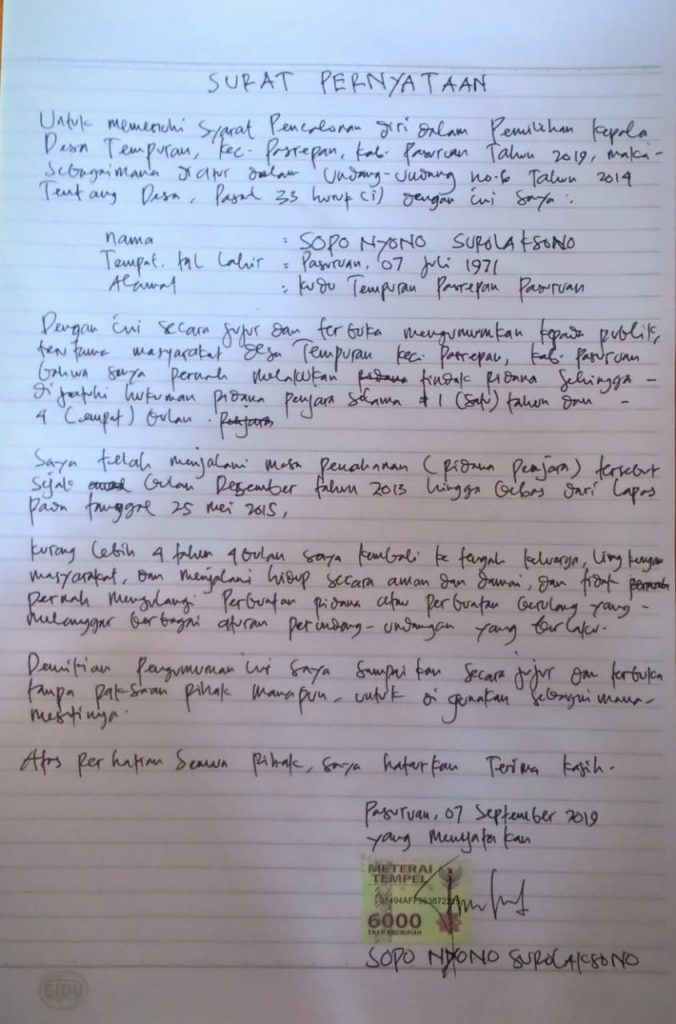 SURAT PERNYATAAN
Untuk memenuhi Syarat Pencalonan diri dalam Pemilihan Kepala
Desa Tempuran, Kec. Pasrepan, Kab. Pasuruan Tahun 2019, maka -
Sebagaimana diatur dalam Undang-Undang no.6 Tahun 2014
Tentang Desa, Pasal 33 huruf (i) dengan ini Saya :
nama : SOPO NYONO SUROLAKSONO
Tempat, tgl Lahir : Pasuruan, 07 Juli 1971
Alamat : Kudu Tempuran Pasrepan Pasuruan
Dengan ini secara jujur dan terbuka mengumumkan kepada publik,
terutama masyarakat desa Tempuran Kec. Pasrepan, Kab. Pasuruan
bahwa saya pernah melakukan pidana tindak pidana sehingga -
dijatuhi hukuman pidana penjara selama 1 (satu) tahun dan -
4 (empat) bulan. penjara
Saya telah menjalani masa penahanan (pidana penjara) tersebut
sejak bulan Desember tahun 2013 hingga bebas dari Lapas
pada tanggal 25 mei 2015,
Kurang lebih 4 tahun 4 bulan saya kembali ke tengah keluarga, lingkungan
masyarakat, dan menjalani hidup secara aman dan damai, dan tidak pernah
pernah mengulangi Perbuatan pidana atau perbuatan berulang yang -
melanggar berbagai aturan perundang-undangan yang berlaku.
Demikian Pengumuman ini saya sampaikan secara jujur dan terbuka
tanpa paksaan pihak manapun, untuk di gunakan sebagaimana-
mestinya.
Atas perhatian semua pihak, saya haturkan Terima kasih.
Pasuruan, 07 September 2019
yang menyatakan
METERAI
TEMPEL
6000
ENAM RIBU RUPIAH
SOPO NYONO SUROLAKSONO
SiDU